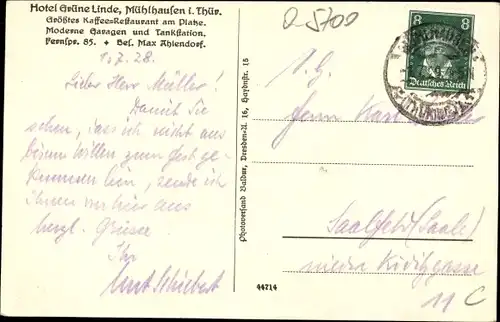 Hotel Grüne Linde, Mühlhausen i. Thür.
Größtes Kaffee-Restaurant am Platze.
Moderne Garagen und Tankstation.
Fernspr. 85. ✦ Bes. Max Ahlendorf.
1.7.28.
Lieber Herr Müller!
Damit Sie
sehen, dass ich nicht aus
bösem Willen zum fest ge-
kommen bin, sende ich
Ihnen von hier aus
herzl. Grüsse
Ihr
Kurt Schiebert
Photoversand Baldus, Dresden-A. 16, Haydnstr. 15
44714
Q 5700
8 8
Deutsches Reich
Herrn Kurt
Saalfeld (Saale)
niedere
11
C